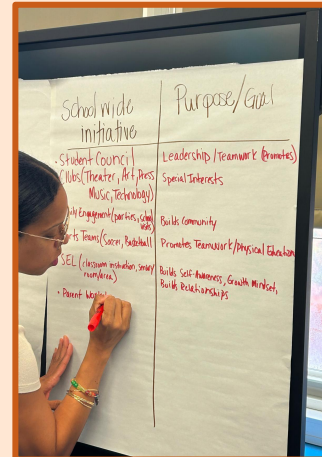 School wide
initiative
Purpose/Goal
· Student Council
Leadership/Teamwork (Promotes)
Clubs (Theater, Art, Press
Music, Technology)
Special Interests
Engagement (parties, school
Builds Community
Teams (Soccer, Basketball
Promotes Teamwork/Physical Education
SEL (classroom instruction, sensory
room/area)
Builds Self-Awareness, Growth Mindset,
Builds Relationships
· Parent